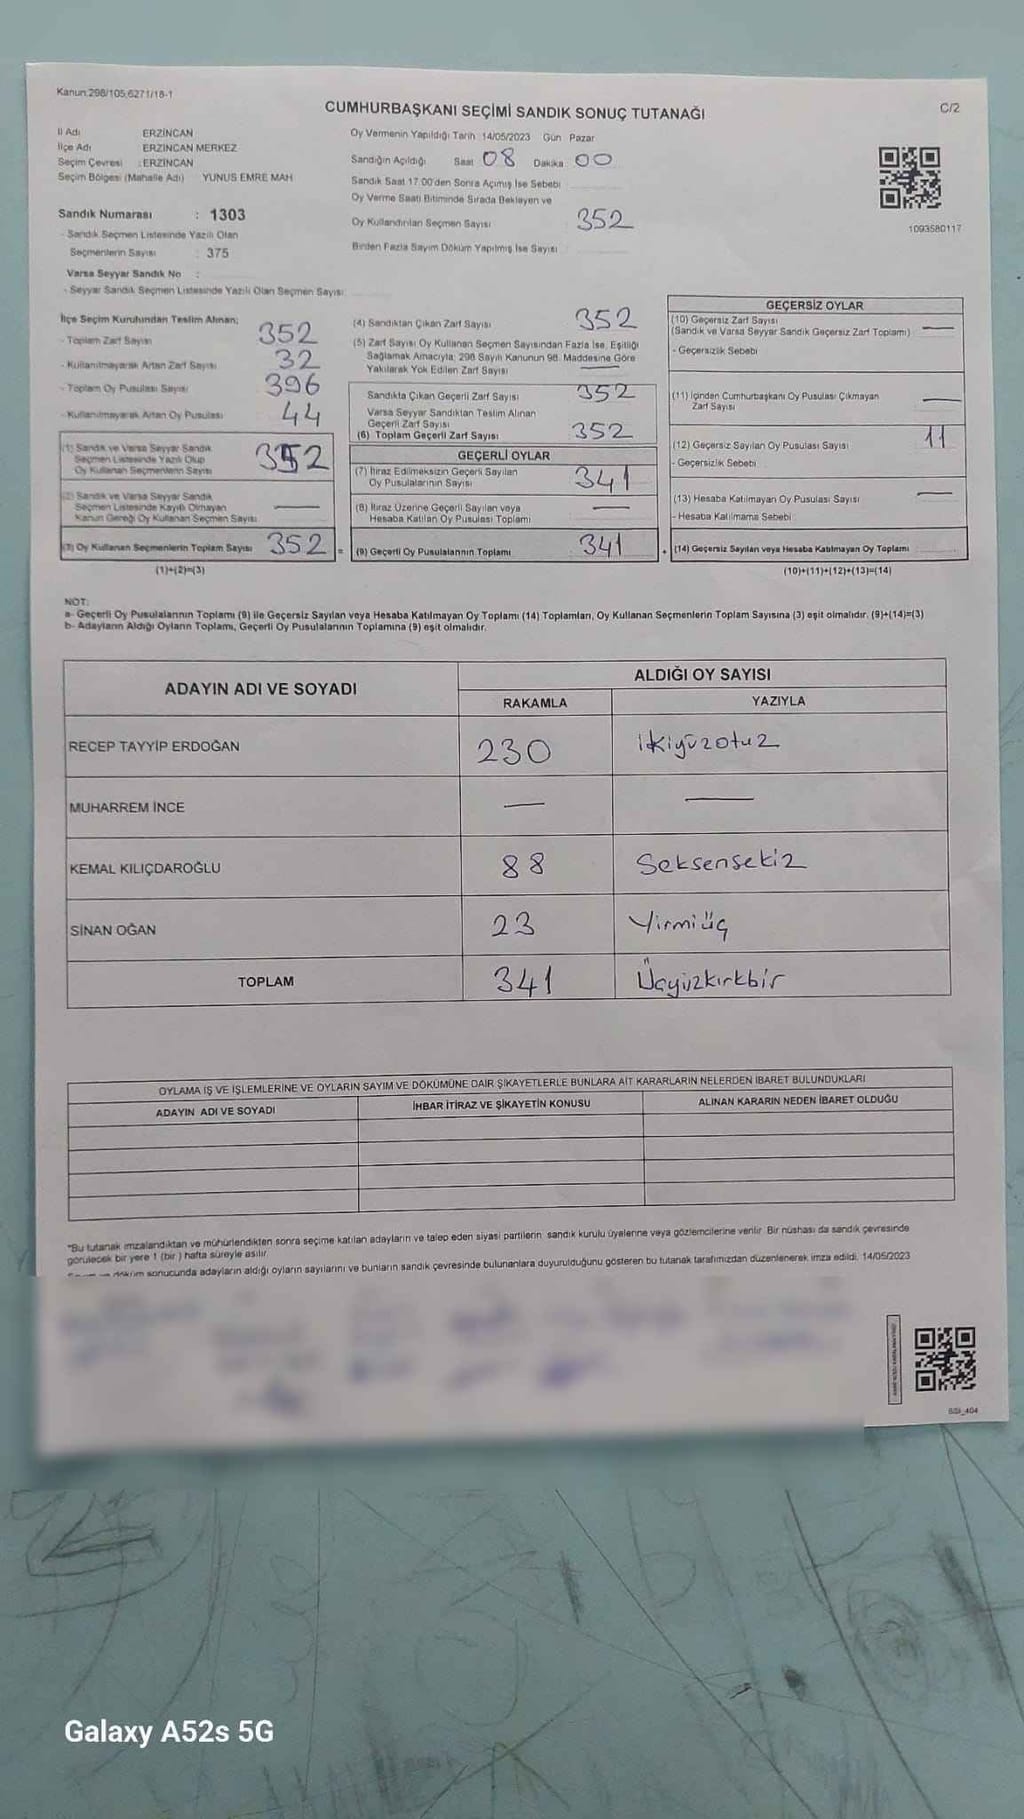 Kanun:298/105;6271/18-1
CUMHURBAŞKANI SEÇİMİ SANDIK SONUÇ TUTANAĞI
C/2
İl Adı ERZİNCAN
İlçe Adı ERZİNCAN MERKEZ
Seçim Çevresi : ERZİNCAN
Seçim Bölgesi (Mahalle Adı) YUNUS EMRE MAH
Sandık Numarası : 1303
- Sandık Seçmen Listesinde Yazılı Olan
Seçmenlerin Sayısı : 375
Varsa Seyyar Sandık No :
- Seyyar Sandık Seçmen Listesinde Yazılı Olan Seçmen Sayısı:
Oy Vermenin Yapıldığı Tarih 14/05/2023 Gün Pazar
Sandığın Açıldığı Saat 08 Dakika 00
Sandık Saat 17.00'den Sonra Açımış İse Sebebi
Oy Verme Saati Bitiminde Sırada Bekleyen ve
Oy Kullandırılan Seçmen Sayısı 352
Birden Fazla Sayım Döküm Yapılmış İse Sayısı
1093580117
İlçe Seçim Kurulundan Teslim Alınan;
- Toplam Zarf Sayısı 352
- Kullanılmayarak Artan Zarf Sayısı 32
- Toplam Oy Pusulası Sayısı 396
- Kullanılmayarak Artan Oy Pusulası 44
(1) Sandık ve Varsa Seyyar Sandık
Seçmen Listesinde Yazılı Olup
Oy Kullanan Seçmenlerin Sayısı 352
(2) Sandık ve Varsa Seyyar Sandık
Seçmen Listesinde Kayıtlı Olmayan
Kanun Gereği Oy Kullanan Seçmen Sayısı —
(3) Oy Kullanan Seçmenlerin Toplam Sayısı 352 =
(1)+(2)=(3)
(4) Sandıktan Çıkan Zarf Sayısı 352
(5) Zarf Sayısı Oy Kullanan Seçmen Sayısından Fazla İse, Eşitliği
Sağlamak Amacıyla; 298 Sayılı Kanunun 98. Maddesine Göre
Yakılarak Yok Edilen Zarf Sayısı —
Sandıkta Çıkan Geçerli Zarf Sayısı 352
Varsa Seyyar Sandıktan Teslim Alınan
Geçerli Zarf Sayısı
(6) Toplam Geçerli Zarf Sayısı 352
GEÇERLİ OYLAR
(7) İtiraz Edilmeksizin Geçerli Sayılan
Oy Pusulalarının Sayısı 341
(8) İtiraz Üzerine Geçerli Sayılan veya
Hesaba Katılan Oy Pusulası Toplamı —
(9) Geçerli Oy Pusulalarının Toplamı 341 +
GEÇERSİZ OYLAR
(10) Geçersiz Zarf Sayısı
(Sandık ve Varsa Seyyar Sandık Geçersiz Zarf Toplamı) —
- Geçersizlik Sebebi
(11) İçinden Cumhurbaşkanı Oy Pusulası Çıkmayan
Zarf Sayısı —
(12) Geçersiz Sayılan Oy Pusulası Sayısı 11
- Geçersizlik Sebebi
(13) Hesaba Katılmayan Oy Pusulası Sayısı —
- Hesaba Katılmama Sebebi
(14) Geçersiz Sayılan veya Hesaba Katılmayan Oy Toplamı
(10)+(11)+(12)+(13)=(14)
NOT:
a- Geçerli Oy Pusulalarının Toplamı (9) ile Geçersiz Sayılan veya Hesaba Katılmayan Oy Toplamı (14) Toplamları, Oy Kullanan Seçmenlerin Toplam Sayısına (3) eşit olmalıdır. (9)+(14)=(3)
b- Adayların Aldığı Oyların Toplamı, Geçerli Oy Pusulalarının Toplamına (9) eşit olmalıdır.
ADAYIN ADI VE SOYADI ALDIĞI OY SAYISI
RAKAMLA YAZIYLA
RECEP TAYYİP ERDOĞAN 230 ikiyüzotuz
MUHARREM İNCE — —
KEMAL KILIÇDAROĞLU 88 Seksensekiz
SİNAN OĞAN 23 Yirmiüç
TOPLAM 341 Üçyüzkırkbir
OYLAMA İŞ VE İŞLEMLERİNE VE OYLARIN SAYIM VE DÖKÜMÜNE DAİR ŞİKAYETLERLE BUNLARA AİT KARARLARIN NELERDEN İBARET BULUNDUKLARI
ADAYIN ADI VE SOYADI İHBAR İTİRAZ VE ŞİKAYETİN KONUSU ALINAN KARARIN NEDEN İBARET OLDUĞU
"Bu tutanak imzalandıktan ve mühürlendikten sonra seçime katılan adayların ve talep eden siyasi partilerin sandık kurulu üyelerine veya gözlemcilerine verilir. Bir nüshası da sandık çevresinde
görülecek bir yere 1 (bir) hafta süreyle asılır.
döküm sonucunda adayların aldığı oyların sayılarını ve bunların sandık çevresinde bulunanlara duyurulduğunu gösteren bu tutanak tarafımızdan düzenlenerek imza edildi. 14/05/2023
Galaxy A52s 5G